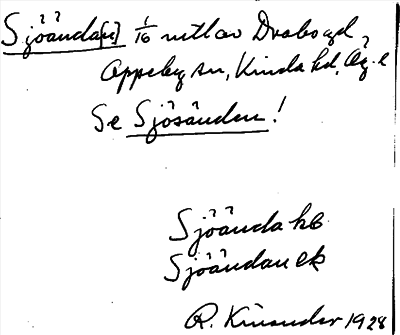 Sjöända[n] 1/16 mtl av Drabo gd,
Appelby sn, Kinda hd, Ög. l
Se Sjösänden!
Sjöända hb
Sjöändan ek
R. Kinander 1928